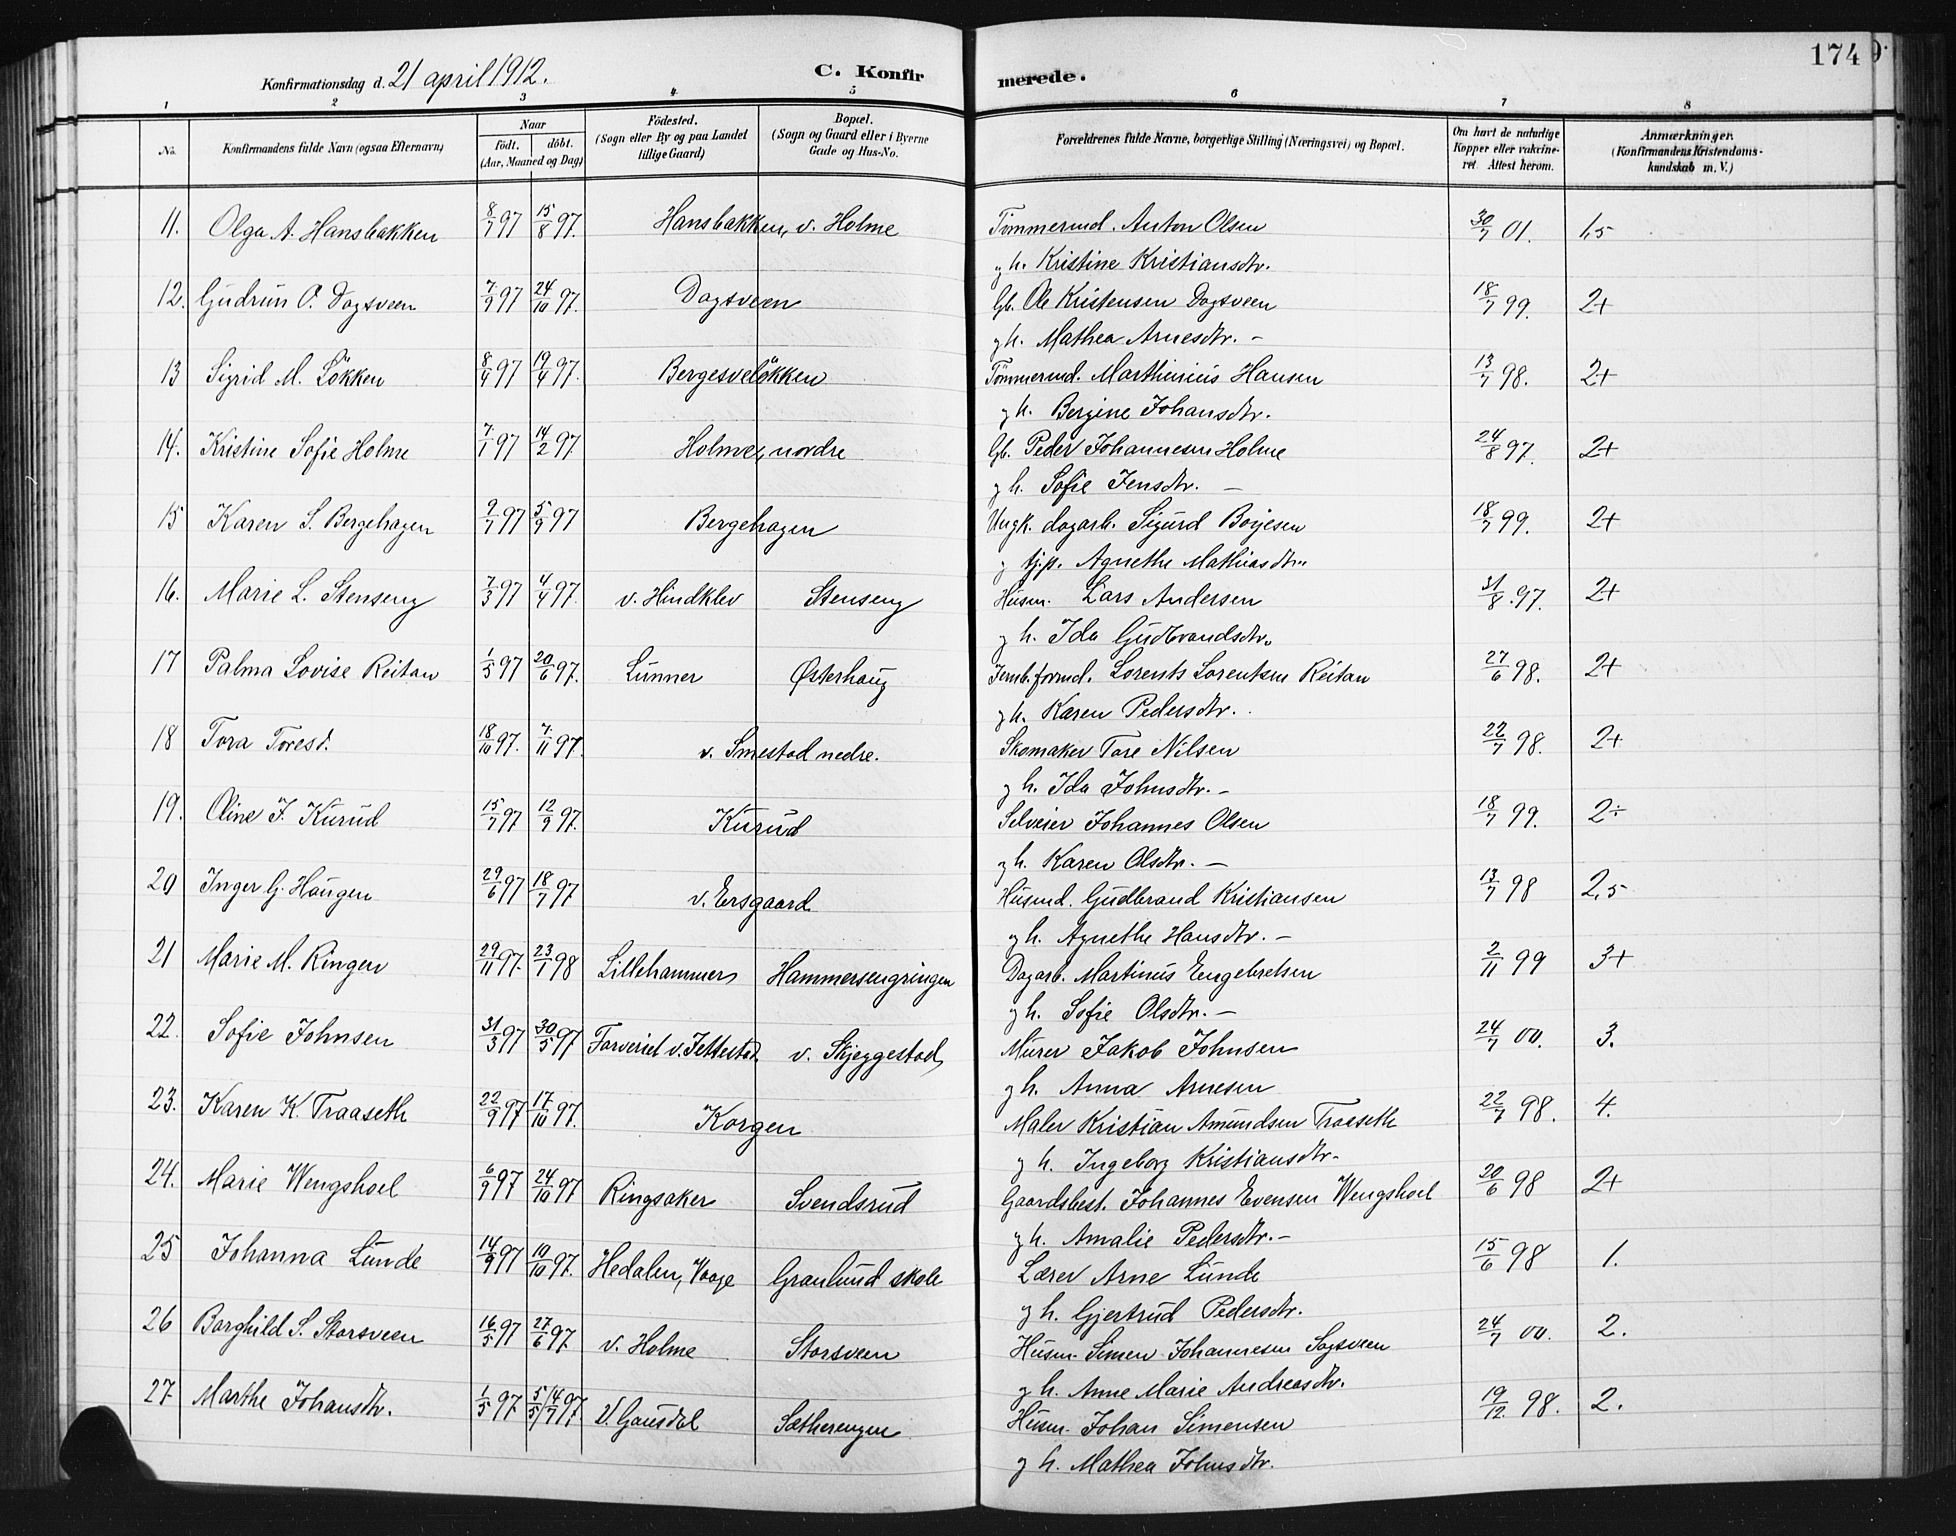 174
Konfirmationsdag d. 21 april 1912.
C. Konfirmerede.
1 2 3 4 5 6 7 8
No.
Konfirmandens fulde Navn (ogsaa Efternavn)
Naar
födt. döbt.
(Aar, Maaned og Dag)
Födested.
(Sogn eller By og paa Landet
tillige Gaard)
Bopæl.
(Sogn og Gaard eller i Byerne
Gade og Hus-No.
Forældrenes fulde Navne, borgerlige Stilling (Næringsvei) og Bopæl.
Om havt de naturlige
Kopper eller vakcine-
ret Attest herom.
Anmærkninger.
(Konfirmandens Kristendoms-
kundskab m. V.)
11. Olga A. Hansbakken 8/7 97 15/8 97. Hansbakken, v. Holme Tömmermd. Anton Olsen 30/7 01. 1,5
g h. Kristine Kristiansdtr.
12. Gudrun O. Dagsveen 7/9 97 24/10 97. Dagsveen Gb. Ole Kristensen Dagsveen 18/7 99. 2+
g h. Mathea Arnesdtr. –
13 Sigrid M. Lökken 8/4 97 19/4 97. Bergesvelökken Tömmermd. Marthinius Hansen 13/7 98. 2+
g h. Bergine Johansdtr.
14. Kristine Sofie Holme 7/1 97 14/2 97 Holme, nordre Gb. Peder Johannesen Holme 24/8 97. 2+
g h. Sofie Jensdtr. –
15 Karen S. Bergehagen 2/7 97 5/9 97 Bergehagen Ungk. dagarb. Sigurd Borjesen 18/7 99. 2+
g tjp. Agnethe Mathiasdtr.
16. Marie L. Stenseng 7/3 97 4/4 97. v. Hindklev Stenseng Husm. Lars Andersen 31/8 97. 2+
g h. Ida Gudbrandsdtr.
17 Palma Lovise Reitan 1/5 97 20/6 97. Lunner Østerhaug Jernb.formd. Lorents Lorentsen Reitan 27/6 98. 2+
g h. Karen Pedersdtr.
18 Tora Toresd. 18/10 97. 7/11 97. v. Smestad nedre. Skomaker Tore Nilsen 22/7 98. 2+
g h. Ida Johnsdtr. –
19. Oline J. Kurud 15/7 97 12/9 97. Kurud Selveier Johannes Olsen 18/7 99. 2÷
g h. Karen Olsdtr. –
20 Inger G. Haugen 29/6 97 18/7 97 v. Ersgaard Husmd. Gudbrand Kristiansen 13/7 98 2,5
g h. Agnethe Hansdtr. –
21 Marie M. Ringen 29/11 97. 23/1 98 Lillehammer Hammersengringen Dagarb. Martinus Engebretsen 2/11 99 3+
g h. Sofie Olsdtr. –
22. Sofie Johnsen 31/3 97 30/5 97 Farveriet v. Jettestad v. Skjeggestad Murer Jakob Johnsen 24/7 00. 3.
g h. Anna Arnesen
23. Karen K. Traaseth 22/9 97 17/10 97. Korgen Maler Kristian Amundsen Traaseth 22/7 98. 4.
g h. Ingeborg Kristiansdtr.
24. Marie Wengshoel 6/9 97 24/10 97 Ringsaker Svendsrud Gaardsbest. Johannes Evensen Wengshoel 20/6 98 2+
g h. Amalie Pedersdtr. –
25 Johanna Lunde 14/9 97 10/10 97. Hedalen, Vaage Granlund skole Lærer Arne Lunde 15/6 98 1.
g h. Gjertrud Pedersdtr.
26 Borghild S. Storsveen 16/5 97 27/6 97. v. Holme Storsveen Husm. Simen Johannesen Sagsveen 24/7 00. 2.
g h. Anne Marie Andreasdtr.
27 Marthe Johansdtr. 1/5 97 5/5 / 4/7 97. V. Gausdal Sætherengen Husm. Johan Simensen 19/12 98. 2.
g h. Mathea Johnsdtr.